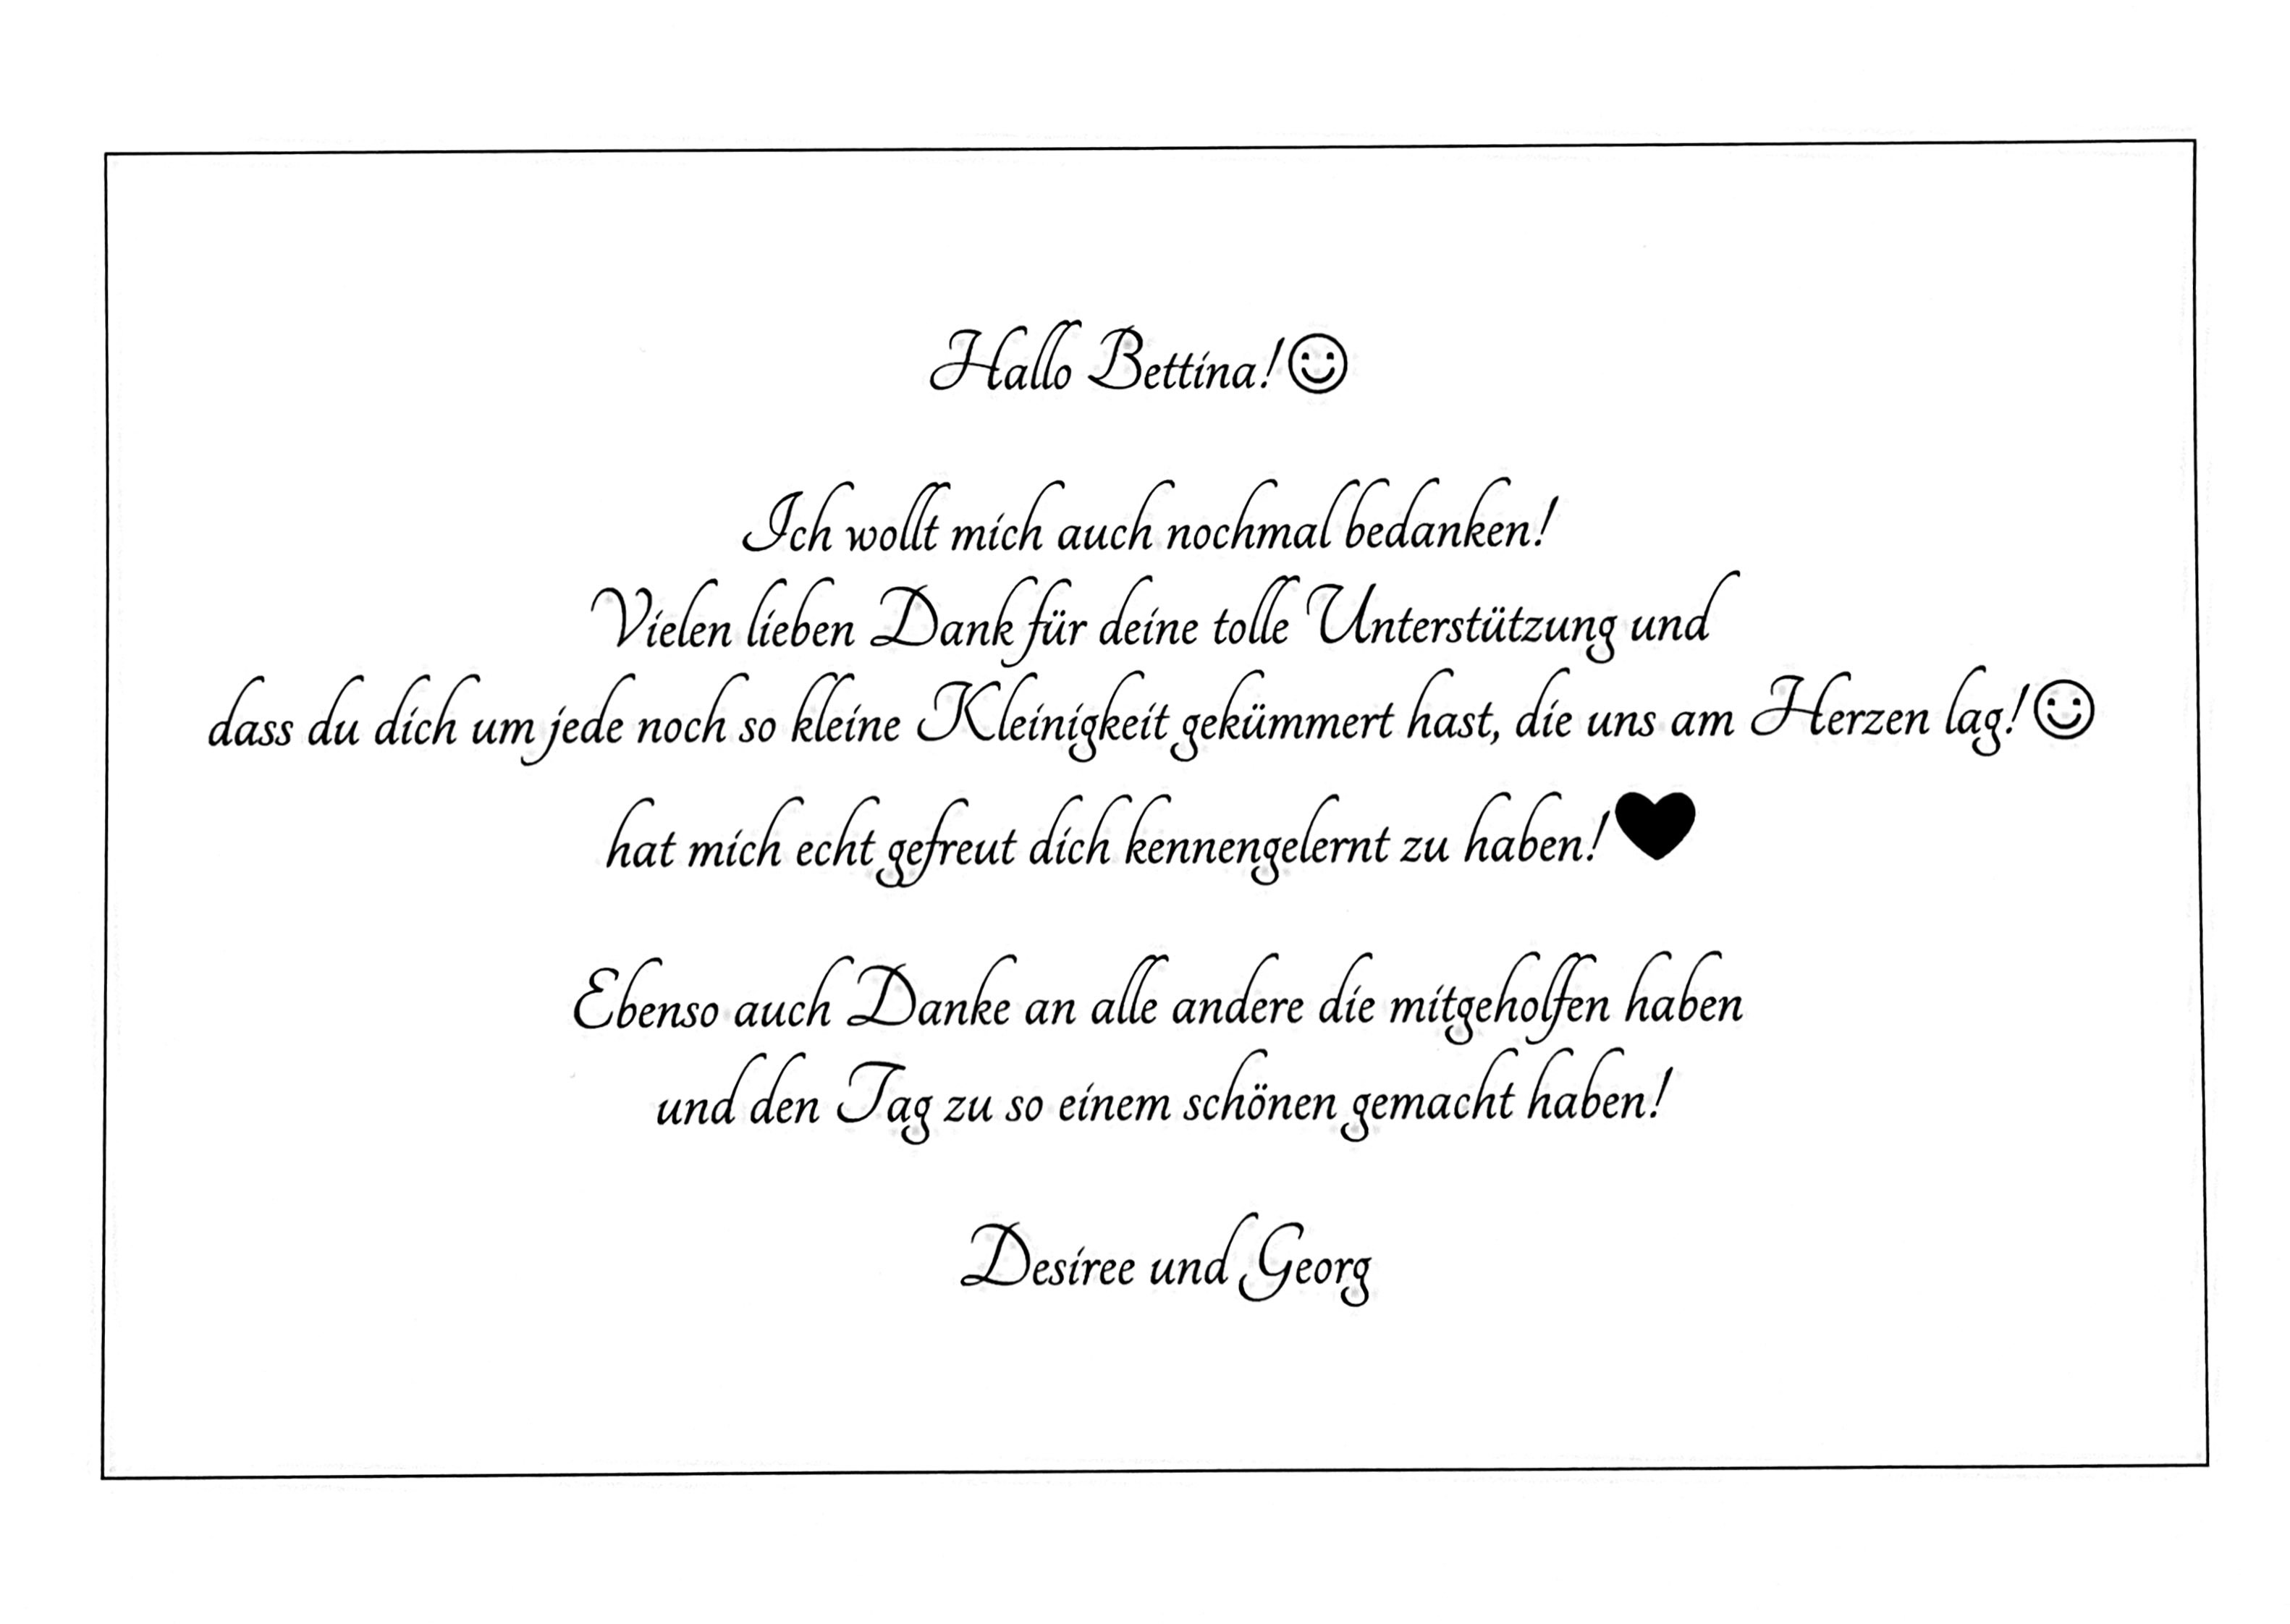 Hallo Bettina!☺
Ich wollt mich auch nochmal bedanken!
Vielen lieben Dank für deine tolle Unterstützung und
dass du dich um jede noch so kleine Kleinigkeit gekümmert hast, die uns am Herzen lag!☺
hat mich echt gefreut dich kennengelernt zu haben!♥
Ebenso auch Danke an alle andere die mitgeholfen haben
und den Tag zu so einem schönen gemacht haben!
Desiree und Georg